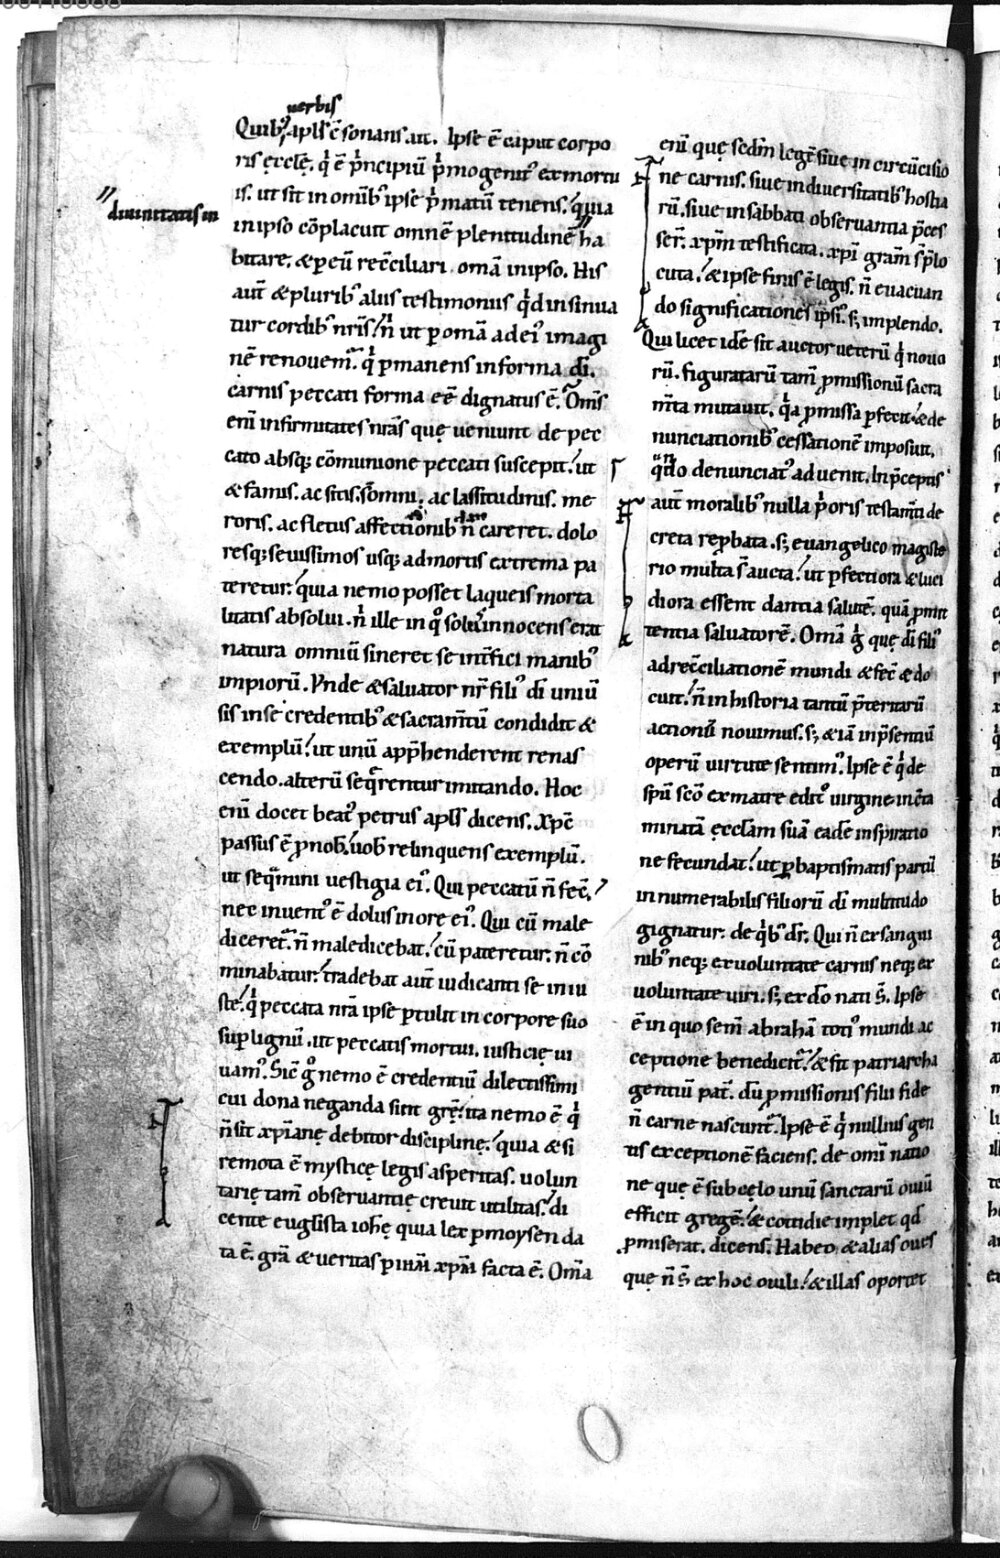 uerbis
Quib; apls ē sonans. ait. Ipse ē caput corpo
ris ęcclę. q̇ ē p̄ncipiū p̄mogenit᾽ ex mortu
is. ut sit in omīb᾽ ipse p̄matū tenens. quia
diuinitatis in
in ipso cōplacuit omnē plenitudinē ha
bitare. & p eū rec̄ciliari omā in ipso. His
aut̄ & plurib᾽ aliis testimoniis qđ insinua
tur cordib᾽ nr̄is. n̄ ut p omā ad ei᾽ imagi
nē renouem᾽. q̇ pmanens in forma dī.
carnis peccati forma eē dignatus ē. Om̄s
enī infirmitates nr̄as quę ueniunt de pec
cato absq; cōmunione peccati suscepit. ut
& famis. ac sitis. somni. ac lassitudinis. me
roris. ac fletus affectionib᾽ n̄ careret. dolo
resq; seuissimos usq; ad mortis extrema pa
teretur. quia nemo posset laqueis morta
litatis absolui. n̄ ille in q̊ solus innocens erat
natura omniū sineret se int̄fici manib᾽
impiorū. Vnde & saluator nr̄ fili᾽ dī uniū
sis in se credentib᾽ & sacram̄tū condidit &
exemplū. ut unū app̄henderent renas
cendo. alterū seq̄rentur imitando. Hoc
enī docet beat᾽ petrus apls dicens. Xpc̄
passus ē p nob. uob relinquens exemplū.
ut seq̄mini uestigia ei᾽. Qui peccatū n̄ fec̄.
nec inuent᾽ ē dolus in ore ei᾽. Qui cū male
diceret᾽. n̄ maledicebat. cū pateretur. n̄ cō
minabatur. tradebat aut̄ iudicanti se iniu
ste. q̇ peccata nr̄a ipse ptulit in corpore suo
sup lignū. ut peccatis mortui. iusticię ui
uam᾽. Sic̄ g̊ nemo ē credentiū dilectissimi
cui dona neganda sint grę. ita nemo ē q̇
n̄ sit xp̄ianę debitor disciplinę. quia & si
remota ē mysticę legis asperitas. uolun
tarię tam̄ obseruantię creuit utilitas. di
cente euglista iohē quia lex p moysen da
ta ē. grā & ueritas p ihm̄ xpm̄ facta ē. Omā
enī quę scdm̄ legē siue in circūcisio
ne carnis. siue in diuersitatib᾽ hostia
rū. siue in sabbati obseruantia p̄ces
ser̄. xpm̄ testificata. xpī gram̄ s̄ plo
cuta. & ipse finis ē legis. n̄ euacuan
do significationes ipsi᾽. s; implendo.
Qui licet idē sit auctor ueterū q̇ nouo
rū. figuratarū tam̄ pmissionū sacra
m̄ta mutauit. q̇a pmissa pfecit. & de
nunciationib᾽ cessationē imposuit.
qn̄do denunciat᾽ aduenit. In p̄ceptis
aut̄ moralib᾽ nulla p̄oris testam̄ti de
creta rep̄bata. s; euangelico magiste
rio multa s̄ aucta. ut pfectiora & luci
diora essent dantia salutē. quā pmit
tentia saluatorē. Omā g̊ quę dī fili᾽
ad rec̄ciliationē mundi & fec̄ & do
cuit. n̄ in historia tantū p̄teritarū
actionū nouimus. s; & iā in p̄sentiū
operū uirtute sentim᾽. Ipse ē q̇ de
spū scō ex matre edit᾽ uirgine incta
minatā ęcclam suā eadē inspiratio
ne fecundat. ut p baptismatis partū
innumerabilis filiorū dī multitudo
gignatur. de q̇b᾽ dr̄. Qui n̄ ex sangui
nib᾽ neq; ex uoluntate carnis neq; ex
uoluntate uiri. s; ex dō nati s̄. Ipse
ē in quo sem̄ abrahā toti᾽ mundi ac
ceptione benedicit̄. & fit patriarcha
gentiū pat̄. dū pmissionis filii fide
n̄ carne nascunt̄. Ipse ē q̇ nullius gen
tis exceptionē faciens. de omī natio
ne que ē sub cęlo unū sanctarū ouiū
efficit gregē. & cottidie implet qđ
pmiserat. dicens. Habeo & alias oues
que n̄ s̄ ex hoc ouili. & illas oportet